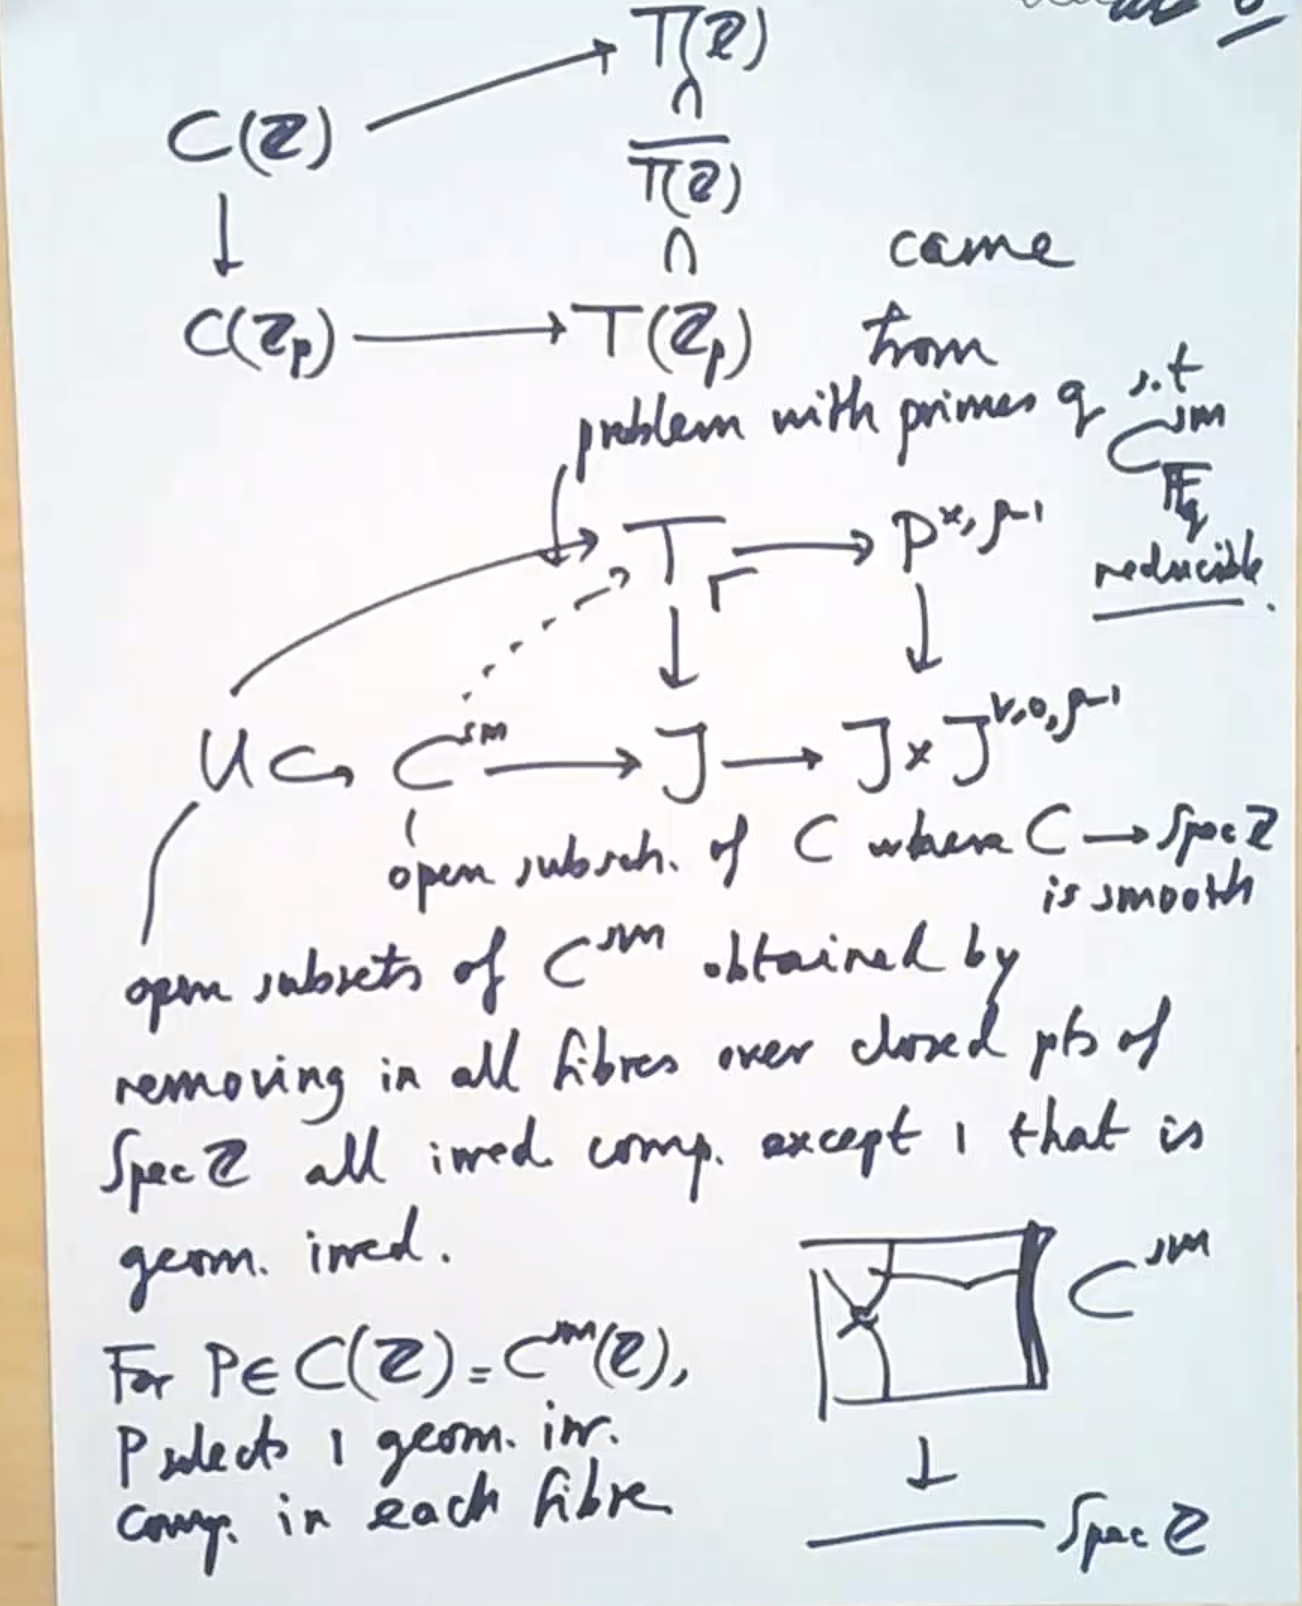 T(ℤ)
∩
C(ℤ) ⟶ \overline{T(ℤ)}
↓ ∩
C(ℤ_p) ⟶ T(ℤ_p) came
from
problem with primes q s.t
C^{sm}_{𝔽_q}
reducible.
T ⟶ P^{×,ρ-1}
↓ ↓
U ↪ C^{sm} ⟶ J ⟶ J × J^{∨,0,ρ-1}
open subsch. of C where C ⟶ Spec ℤ
is smooth
open subsets of C^{sm} obtained by
removing in all fibres over closed pts of
Spec ℤ all irred. comp. except 1 that is
geom. irred.
C^{sm}
For P ∈ C(ℤ) = C^{sm}(ℤ),
P selects 1 geom. irr.
comp. in each fibre
↓
Spec ℤ